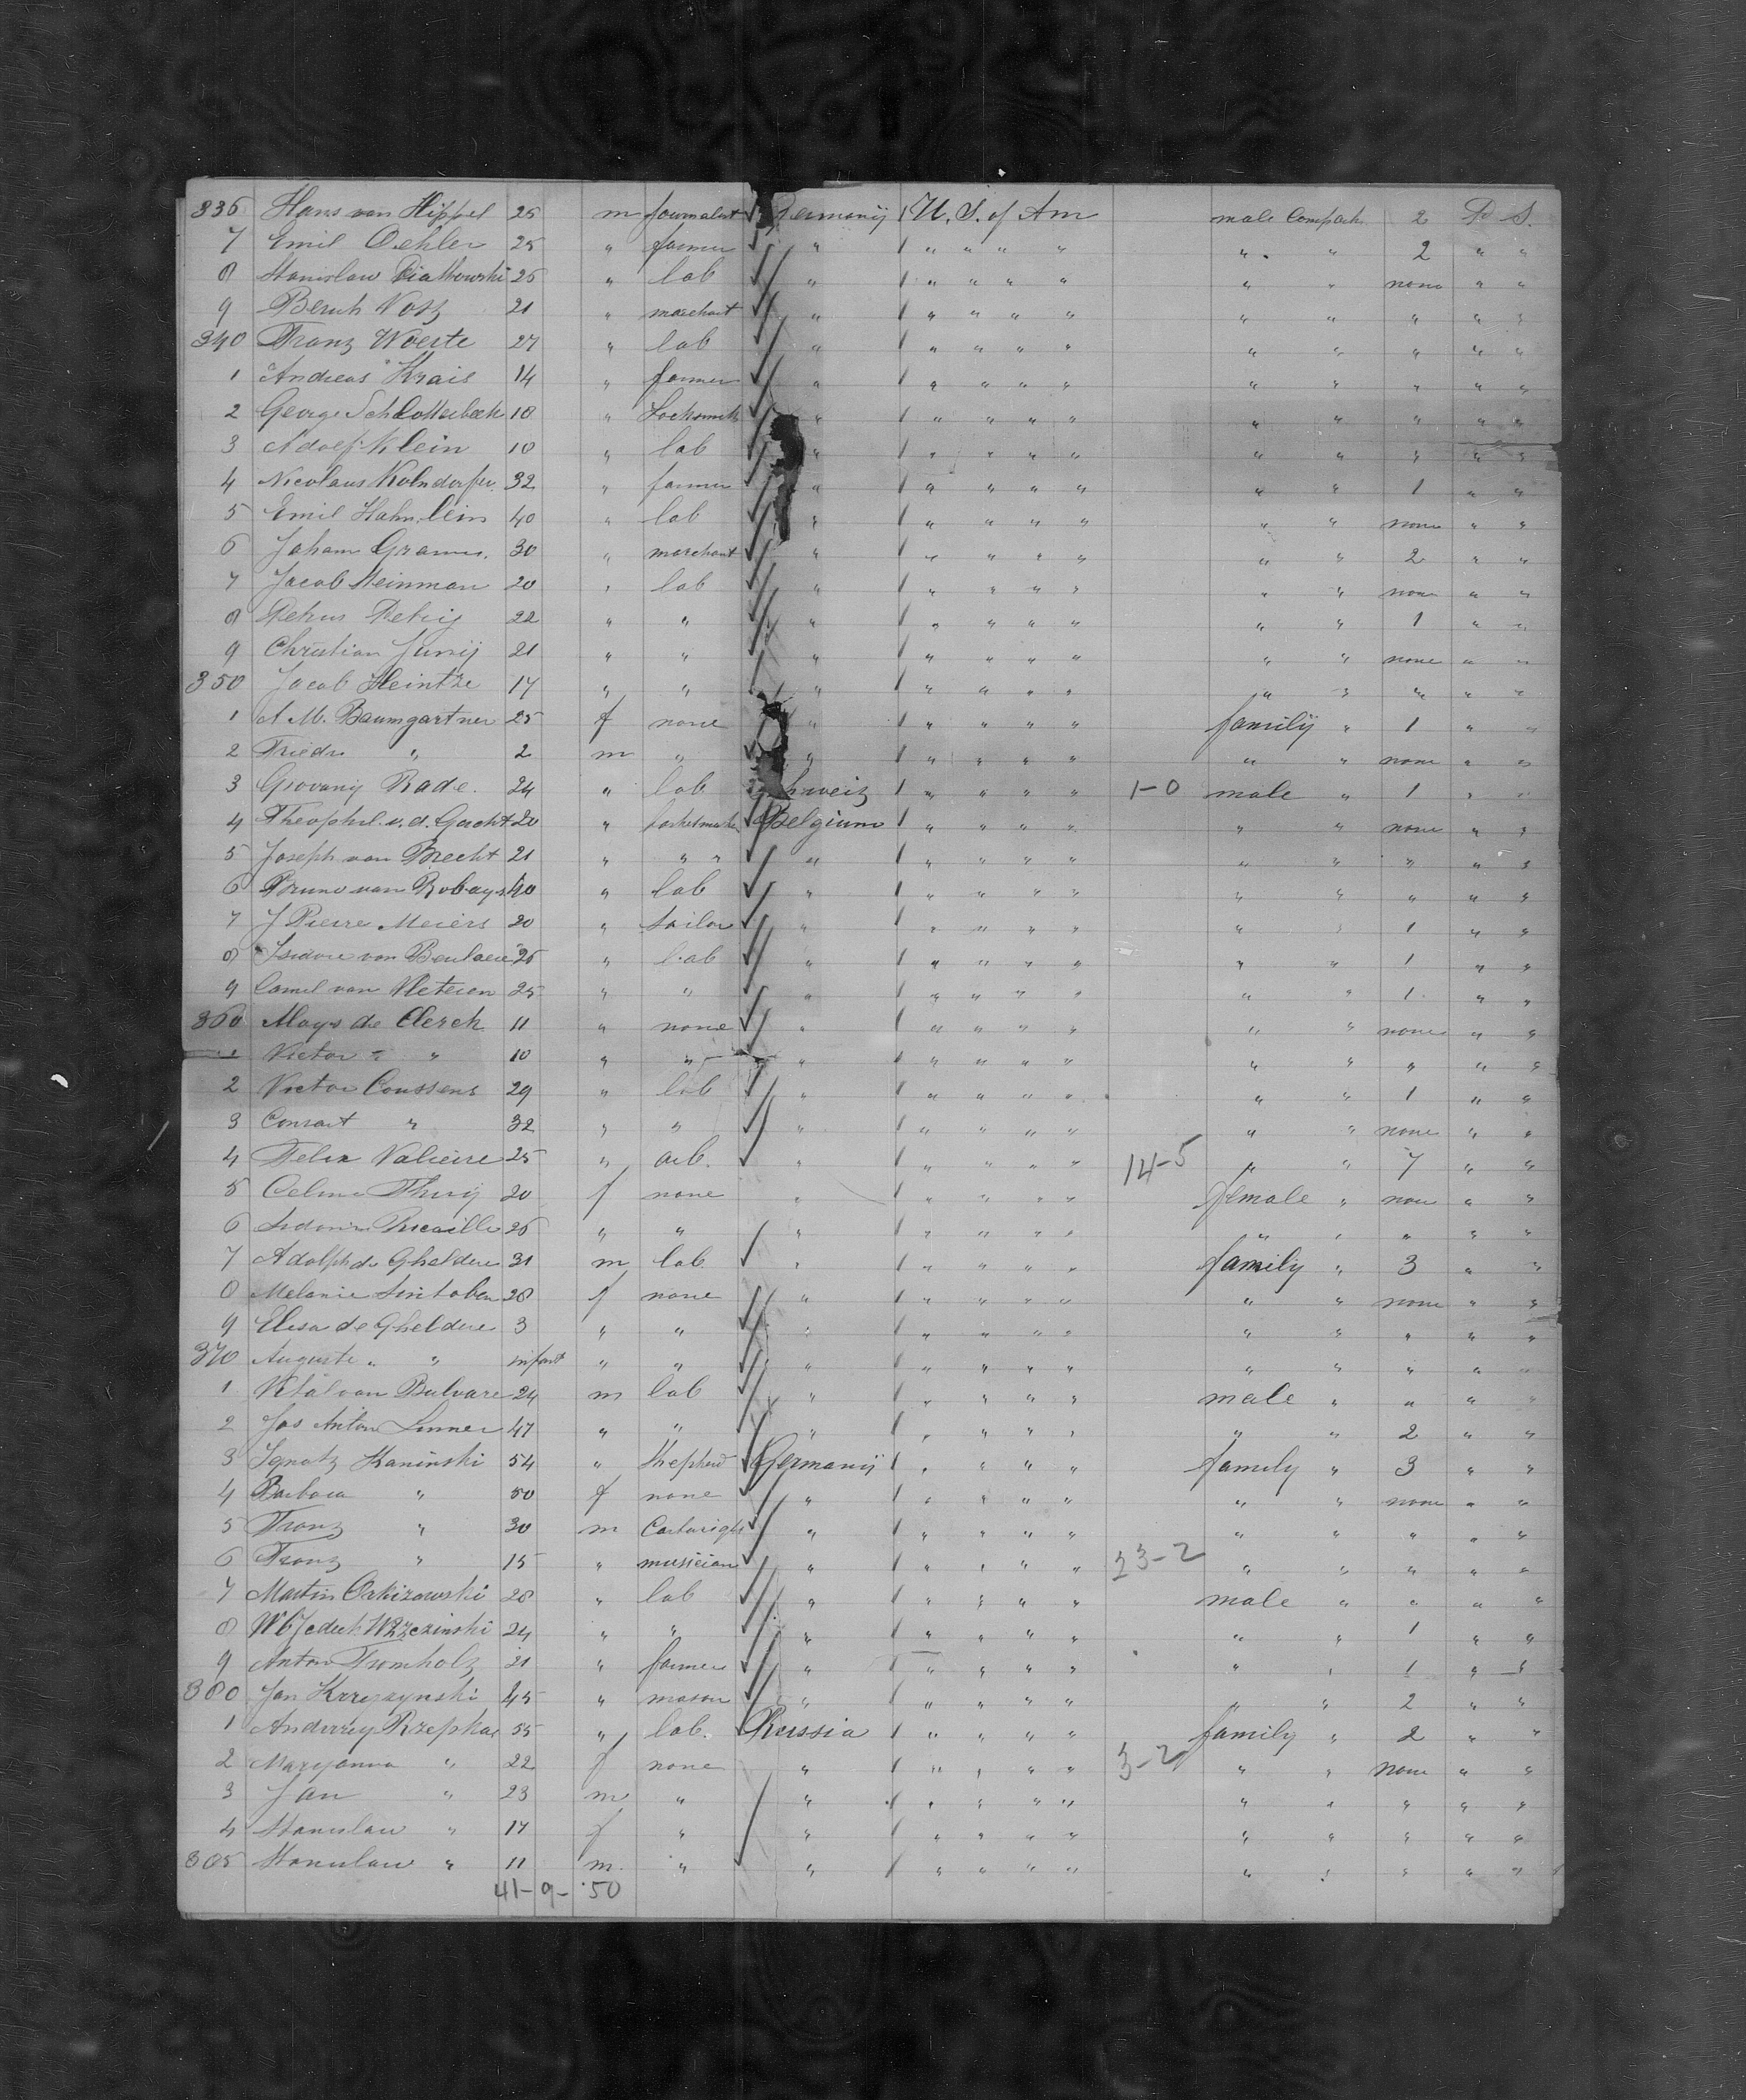 336 Hans von Hippel 25 m journalist Germany U. S. of Am male Compart 2 D S.
7 Emil Oehler 25 " farmer " " " " " " " 2 " "
8 Stanislaw 25 " lab " " " " " " " none " "
9 Bernh Vosz 21 " marchant " " " " " " " " " "
340 Franz Woeste 27 " lab " " " " " " " " " "
1 Andreas Krais 14 " farmer " " " " " " " " " "
2 George Schlotterbeck 18 " Locksmith " " " " " " " " " "
3 Adolf Klein 18 " lab " " " " " " " " " "
4 Nicolaus 32 " farmer " " " " " " " 1 " "
5 Emil Hahnlein 40 " lab " " " " " " " none " "
6 Johann 30 " marchant " " " " " " " 2 " "
7 Jacob 20 " lab " " " " " " " none " "
8 Petrus 22 " " " " " " " " " 1 " "
9 Christian 21 " " " " " " " " " none " "
350 Jacob Heintze 17 " " " " " " " " " " " "
1 A M. Baumgartner 25 f none " " " " " family " 1 " "
2 Friedr " 2 m " " " " " " " " none " "
3 Giovany Rade. 24 " lab Schweiz " " " " 1-0 male " 1 " "
4 Theophil. v. d. 20 " Belgium " " " " " " none " "
5 Joseph van Brecht 21 " " " " " " " " " " " " "
6 Bruno van Robays 40 " lab " " " " " " " " " "
7 J Pierre Meiers 20 " " " " " " " " 1 " "
8 Isidore van 26 " lab " " " " " " " 1 " "
9 Camel van 25 " " " " " " " " " 1 " "
360 Aloys de Clerck 11 " none " " " " " " " none " "
1 Victor " " 10 " " " " " " " " " " " "
2 Victor Coussens 29 " lab " " " " " " " 1 " "
3 " 32 " " " " " " " " " none " "
4 Felix Valieire 25 " arb. " " " " " 14-5 " " 7 " "
5 Celine 20 f none " " " " " female " none " "
6 26 " " " " " " " " " " " "
7 Adolph de Gheldere 31 m lab " " " " " family " 3 " "
8 Melanie 28 f none " " " " " " " none " "
9 Elisa de Gheldere 3 " " " " " " " " " " " "
370 Auguste " " infant " " " " " " " " " " " "
1 24 m lab " " " " " male " " " "
2 Jos Anton 47 " " " " " " " " " 2 " "
3 Ignatz Kaninski 54 " Shepherd Germany " " " " family " 3 " "
4 Barbara " 50 f none " " " " " " " none " "
5 Franz " 30 m " " " " " " " " " "
6 Franz " 15 " musician " " " " " 23-2 " " " " "
7 Martin 28 " lab " " " " " male " " " "
8 24 " " " " " " " " " 1 " "
9 Anton Tromholz 21 " farmer " " " " " " " 1 " "
380 Jan 45 " mason " " " " " " " 2 " "
1 Andrzey Rzepka 55 " lab. Russia " " " " family " 2 " "
2 Maryanna " 22 f none " " " " " 3-2 " " none " "
3 Jan " 23 m " " " " " " " " " " "
4 Stanislaw " 17 f " " " " " " " " " " "
385 Stanislaw " 11 m. " " " " " " " " " " "
41- 9- 50